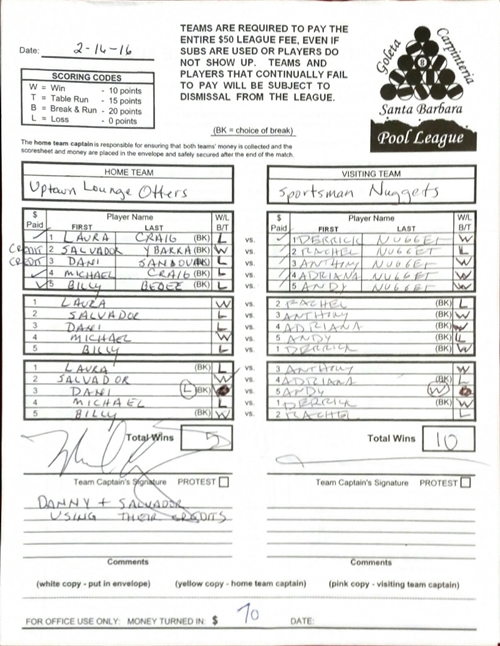 Date: 2-16-16
TEAMS ARE REQUIRED TO PAY THE
ENTIRE $50 LEAGUE FEE, EVEN IF
SUBS ARE USED OR PLAYERS DO
NOT SHOW UP. TEAMS AND
PLAYERS THAT CONTINUALLY FAIL
TO PAY WILL BE SUBJECT TO
DISMISSAL FROM THE LEAGUE.
(BK = choice of break)
Goleta Carpinteria
8
Santa Barbara
Pool League
SCORING CODES
W = Win - 10 points
T = Table Run - 15 points
B = Break & Run - 20 points
L = Loss - 0 points
The home team captain is responsible for ensuring that both teams' money is collected and the
scoresheet and money are placed in the envelope and safely secured after the end of the match.
HOME TEAM VISITING TEAM
Uptown Lounge Otters Sportsman Nuggets
$ Paid Player Name FIRST LAST W/L B/T $ Paid Player Name FIRST LAST W/L B/T
✓ 1 LAURA CRAIG (BK) L vs. ✓ 1 DERRICK NUGGET W
CREDIT 2 SALVADOR YBARRA (BK) W vs. 2 RACHEL NUGGET L
CREDIT 3 DANI SANDOVAL (BK) L vs. 3 ANTHINY NUGGET W
✓ 4 MICHAEL CRAIG (BK) L vs. 4 ADRIANA NUGGET W
✓ 5 BILLY (BK) L vs. 5 ANDY NUGGET W
1 LAURA W vs. 2 RACHEL (BK) L
2 SALVADOR L vs. 3 ANTHINY (BK) W
3 DANI L vs. 4 ADRIANA (BK) W
4 MICHAEL W vs. 5 ANDY (BK) L
5 BILLY L vs. 1 DERRICK (BK) W
1 LAURA (BK) L vs. 3 ANTHINY W
2 SALVADOR W vs. 4 ADRIANA (BK) L
3 DANI L (BK) vs. 5 ANDY W
4 MICHAEL L vs. 1 DERRICK (BK) W
5 BILLY (BK) W vs. 2 RACHEL L
Total Wins 5 Total Wins 10
Team Captain's Signature PROTEST Team Captain's Signature PROTEST
DANNY + SALVADOR
USING THEIR CREDITS
Comments Comments
(white copy - put in envelope) (yellow copy - home team captain) (pink copy - visiting team captain)
FOR OFFICE USE ONLY: MONEY TURNED IN: $ 70 DATE: